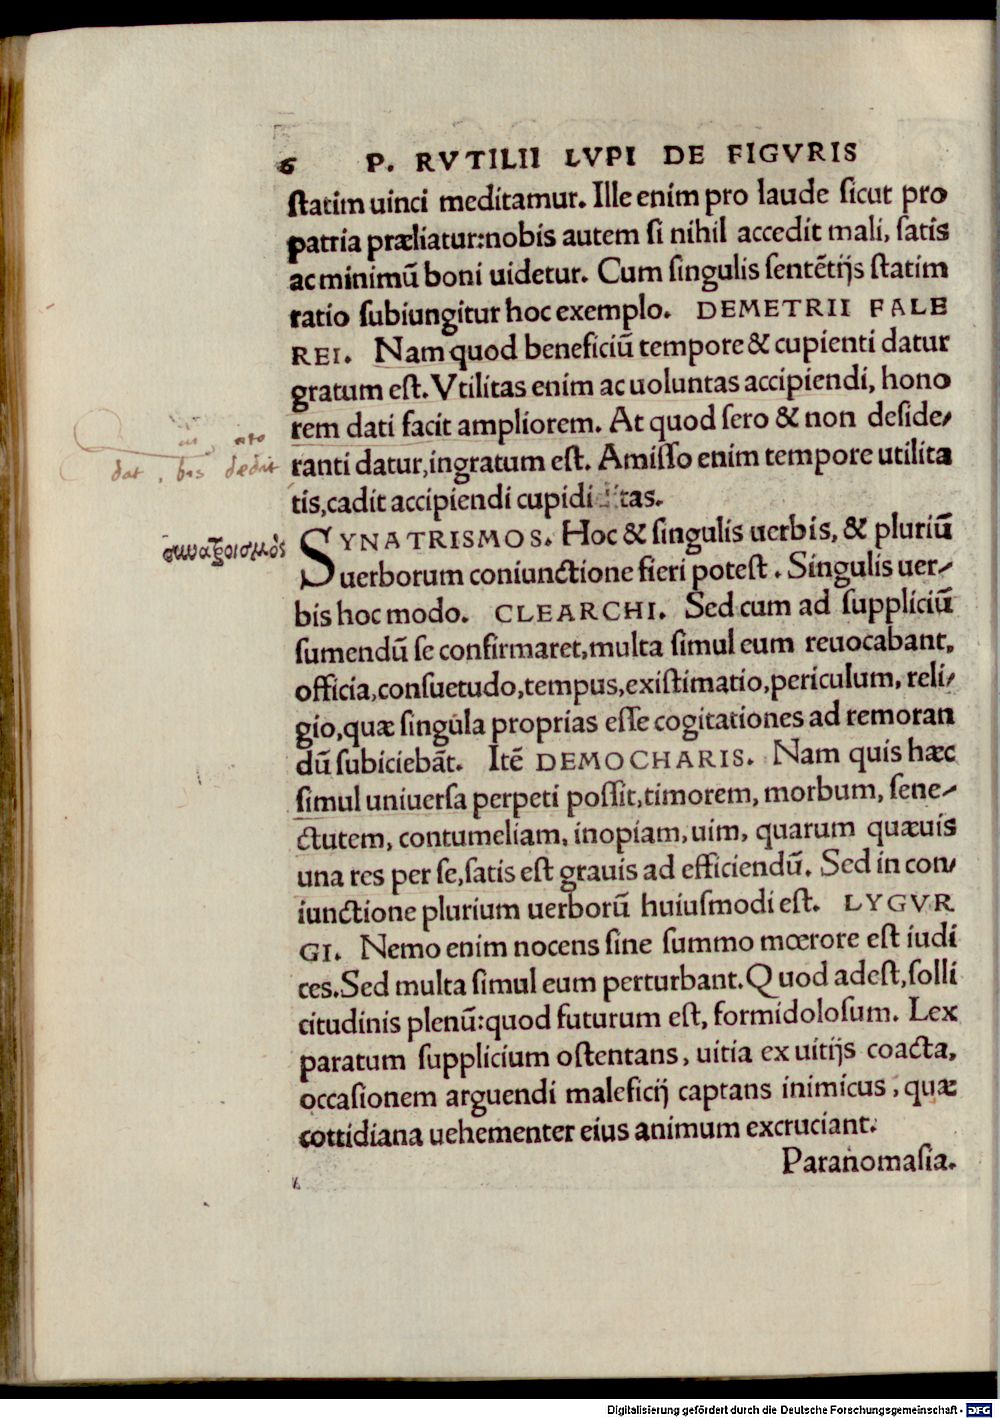 6 P. RVTILII LVPI DE FIGVRIS
statim uinci meditamur. Ille enim pro laude sicut pro
patria præliatur:nobis autem si nihil accedit mali, satis
ac minimũ boni uidetur. Cum singulis sentẽtijs statim
ratio subiungitur hoc exemplo. DEMETRII FALE
REI. Nam quod beneficiũ tempore & cupienti datur
gratum est. Vtilitas enim ac uoluntas accipiendi, hono
rem dati facit ampliorem. At quod sero & non deside-
ranti datur,ingratum est. Amisso enim tempore utilita
tis,cadit accipiendi cupiditas.
cito
dat, bis dedit
συναθροισμὸς
SYNATRISMOS. Hoc & singulis uerbis, & pluriũ
uerborum coniunctione fieri potest. Singulis uer-
bis hoc modo. CLEARCHI. Sed cum ad suppliciũ
sumendũ se confirmaret,multa simul eum reuocabant,
officia,consuetudo,tempus,existimatio,periculum, reli-
gio,quæ singula proprias esse cogitationes ad remoran
dũ subiciebãt. Itẽ DEMOCHARIS. Nam quis hæc
simul uniuersa perpeti possit,timorem, morbum, sene-
ctutem, contumeliam, inopiam, uim, quarum quæuis
una res per se,satis est grauis ad efficiendũ. Sed in con-
iunctione plurium uerborũ huiusmodi est. LYGVR
GI. Nemo enim nocens sine summo mœrore est iudi
ces.Sed multa simul eum perturbant.Quod adest,solli
citudinis plenũ:quod futurum est, formidolosum. Lex
paratum supplicium ostentans, uitia ex uitijs coacta,
occasionem arguendi maleficij captans inimicus, quæ
cottidiana uehementer eius animum excruciant.
Paranomasia.
Digitalisierung gefördert durch die Deutsche Forschungsgemeinschaft - DFG